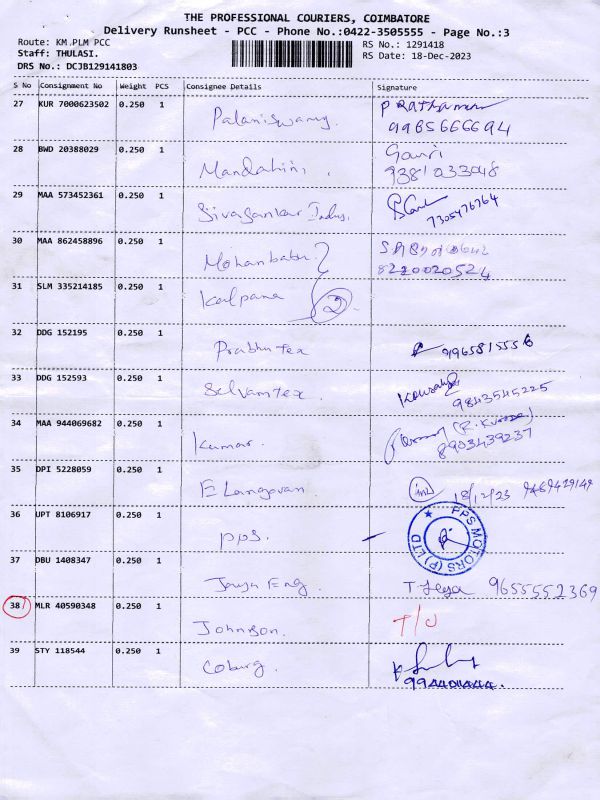 THE PROFESSIONAL COURIERS, COIMBATORE
Delivery Runsheet - PCC - Phone No.:0422-3505555 - Page No.:3
Route: KM.PLM PCC RS No.: 1291418
Staff: THULASI. RS Date: 18-Dec-2023
DRS No.: DCJB129141803
S No Consignment No Weight PCS Consignee Details Signature
27 KUR 7000623502 0.250 1 Palaniswamy.
9965666694
28 BWD 20388029 0.250 1 Mandahini. Gauri
9381033048
29 MAA 573452361 0.250 1 Sivasankar Indus.
7305476764
30 MAA 862458896 0.250 1 Mohanbabu
8220020524
31 SLM 335214185 Kalpana 2
32 DDG 152195 0.250 1 Prabhu tex 9965815556
33 DDG 152593 0.250 1 Selvamtex.
9843545225
34 MAA 944069682 0.250 1 Kumar.
8903439237
35 DPI 5228059 0.250 1 Elangovan 18/12/23
36 UPT 8106917 0.250 1 pps. PPS MOTORS (P) LTD
37 DBU 1408347 0.250 1 Jeya Eng. T. Jeya 9655552369
38 MLR 40590348 0.250 1 Johnson. T/O
39 STY 118544 0.250 1 Coburg.